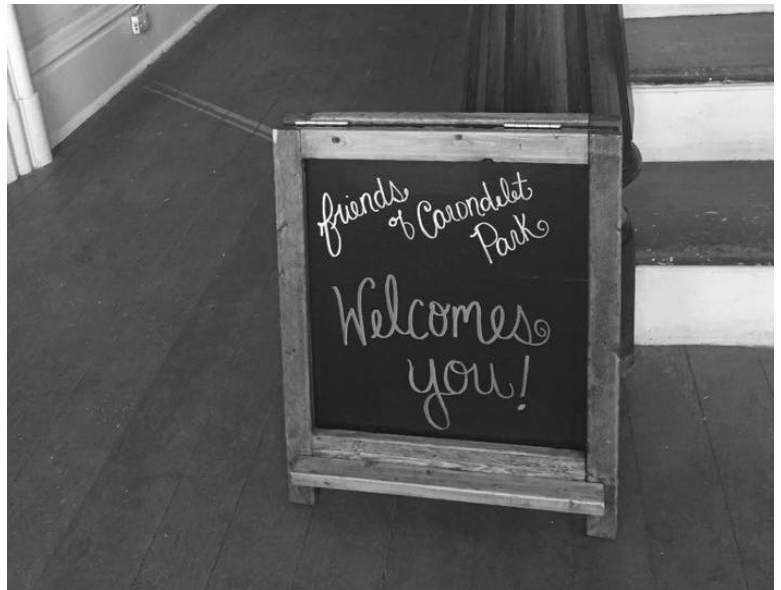 friends
of Carondelet
Park
Welcomes
you!